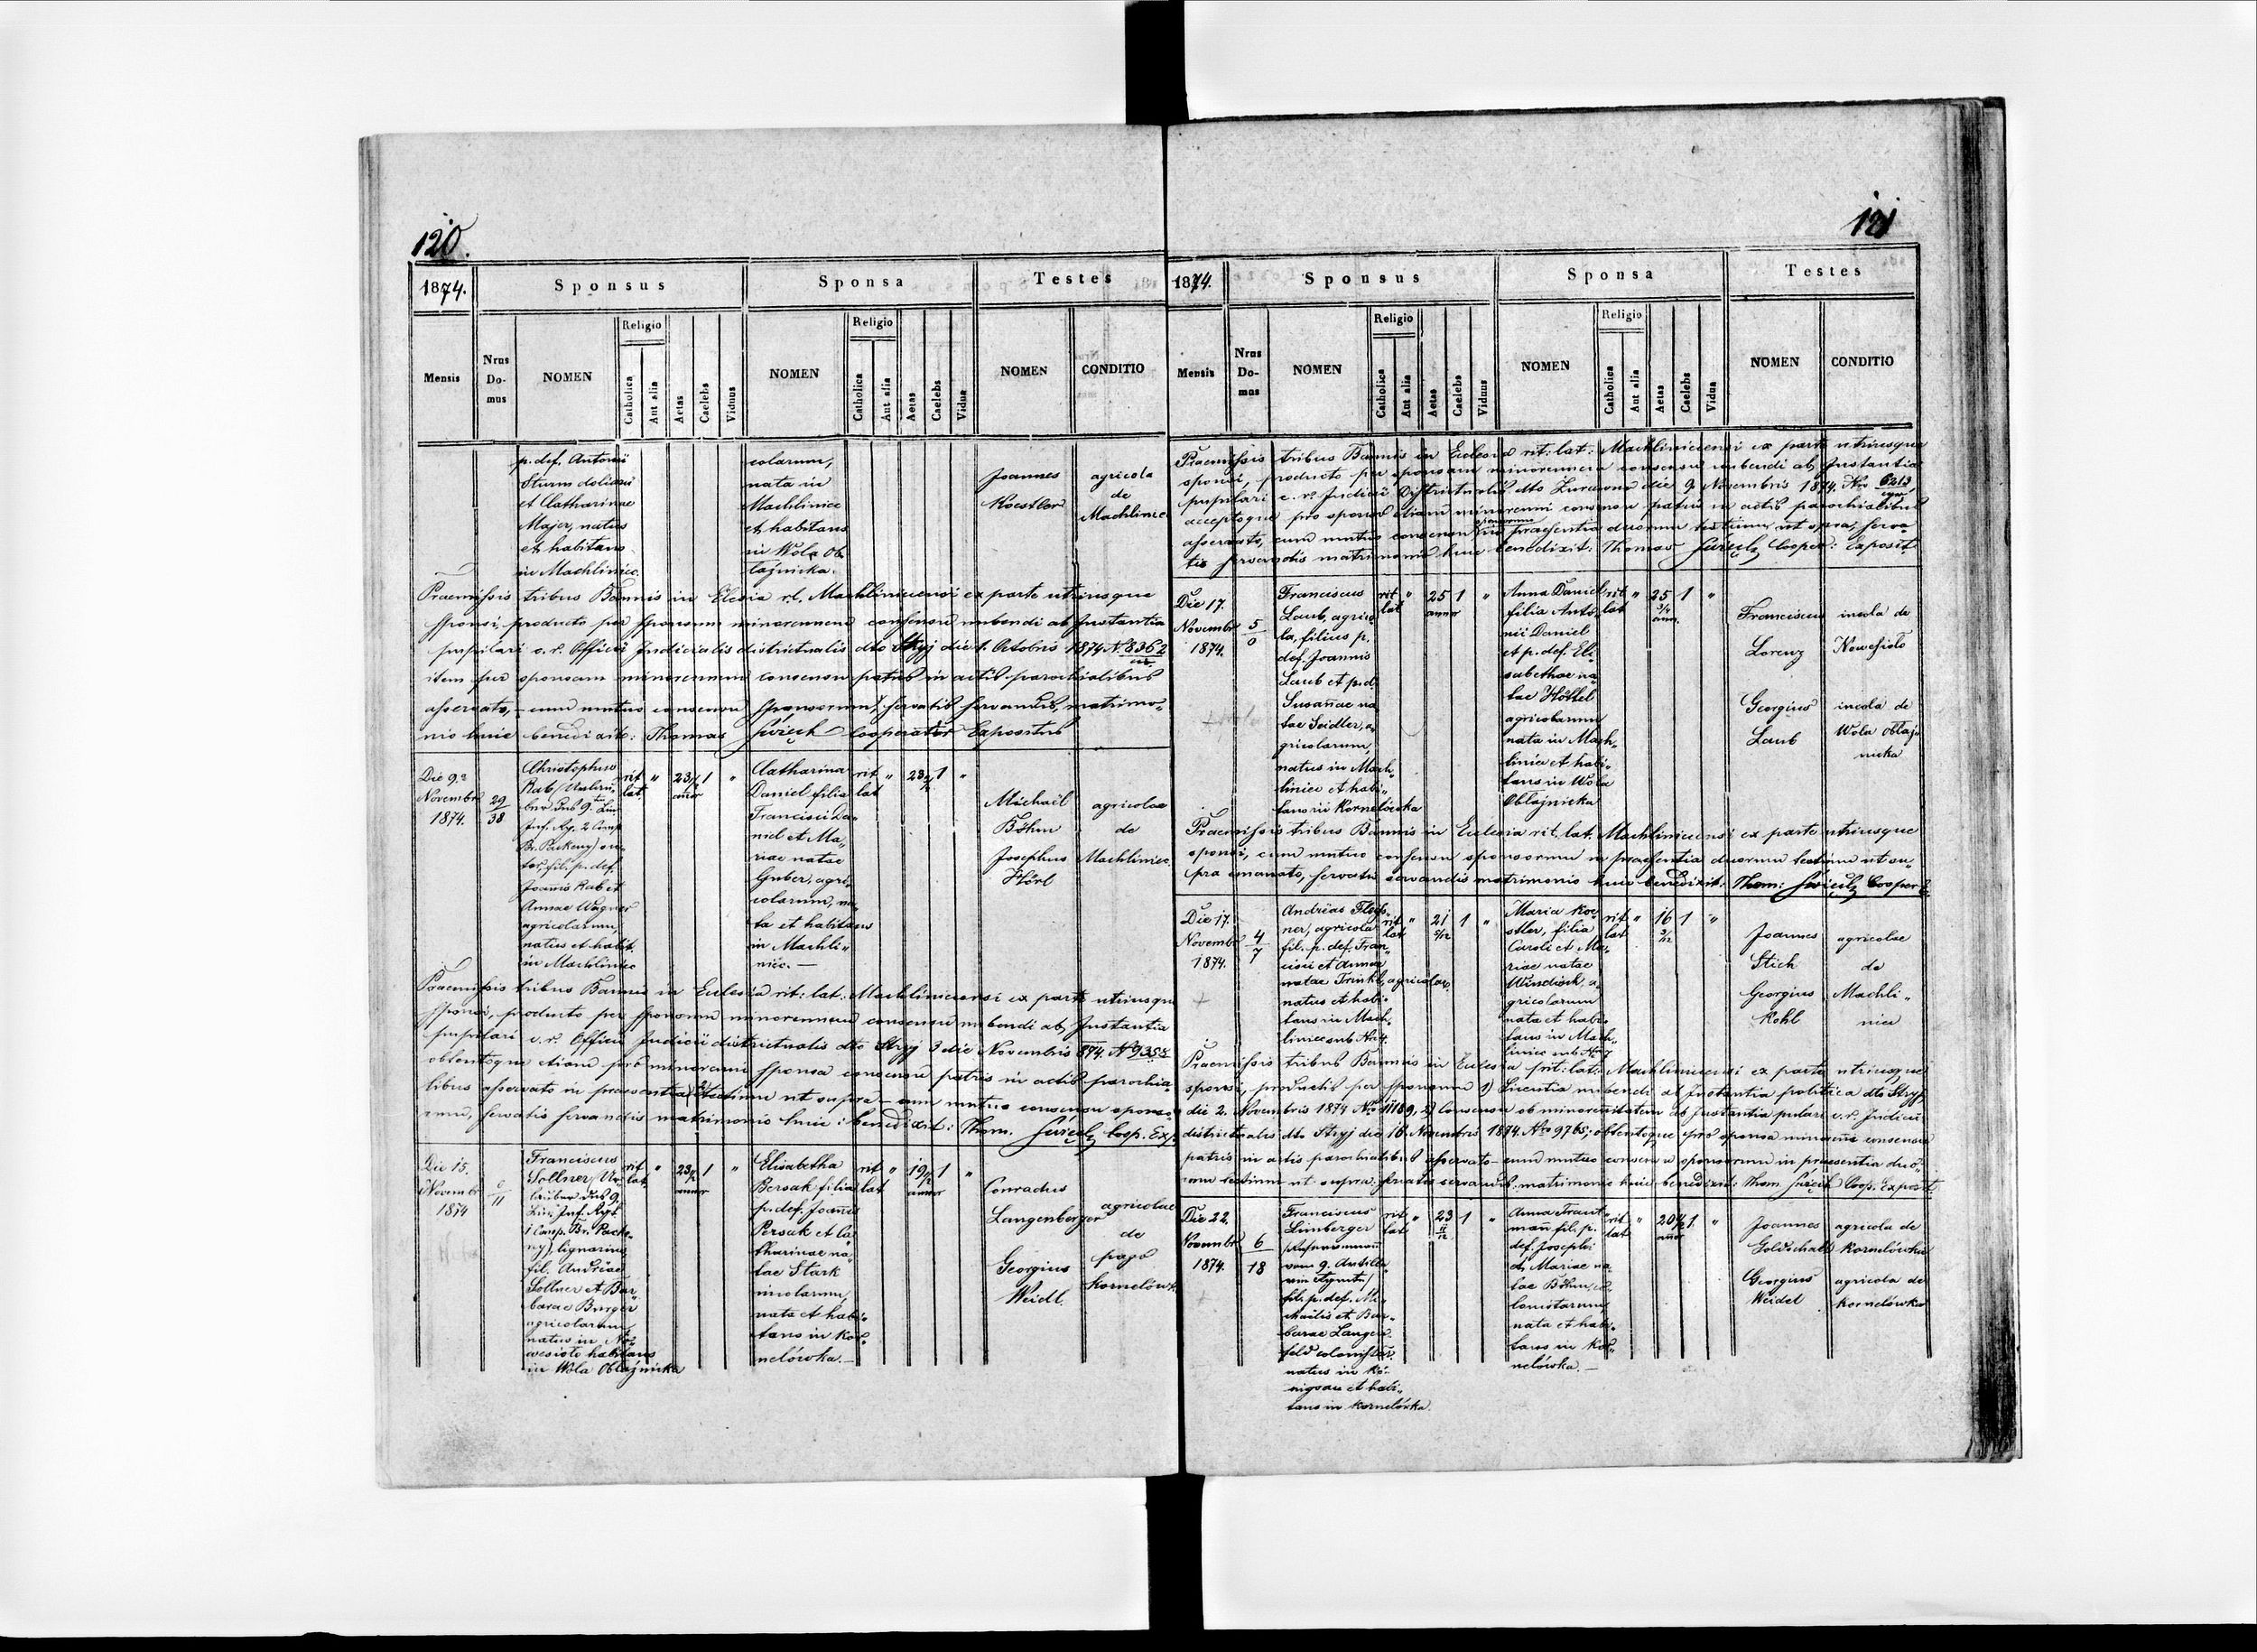 120.
1874.
Sponsus
Sponsa
Testes
Mensis
Nrus Domus
NOMEN
Religio
Catholica
Aut alia
Aetas
Caelebs
Viduus
NOMEN
Religio
Catholica
Aut alia
Aetas
Caelebs
Vidua
NOMEN
CONDITIO
p. def. Antonii
Sturm doliarii
et Catharinae
Majer, natus
et habitans
in Machliniec
colarum,
nata in
Machliniec
et habitans
in Wola Ob
łaźnicka.
Joannes
Koestler
agricola
de
Machliniec
Praemissis tribus Bannis in Eclesia r.l. Machliniecensi ex parte utriusque
sponsi, producto per sponsum minorennem consensu nubendi ab Instantia
pupilari c. r. Officii Judicialis districtualis dto Stryj die 1. Octobris 1874 N. 8362
item per sponsam minorennem consensu patris in actis parochialibus
asservato, – cum mutuo consensu sponsorum, servatis servandis, matrimo„
nio huic benedixit: Thomas Święch Cooperator Expositus
Die 9.
Novembr
1874.
29
38
Christophorus
Rab (Urlau„
ber des 9. Lin
Inf. Rg. 2 Comp
Br. Packeny) su„
tor, fil. p. def.
Joannis Rab et
Annae Wagner
agricolarum,
natus et habit.
in Machliniec
rit
lat
"
23
1
"
Catharina
Daniel filia
Francisci Da„
niel et Ma„
riae natae
Gruber, agri„
colarum, na„
ta et habitans
in Machli„
niec. –
rit
lat
"
23
1
"
Michaël
Böhm
Josephus
Hörl
agricolae
de
Machliniec
Praemissis tribus Bannis in Eclesia rit: lat: Machliniecensi ex parte utriusque
sponsi, producto per sponsum minorennem consensu nubendi ab Instantia
pupilari c. r. Officii Judicii districtualis dto Stryj 3 die Novembris 874. N
obtentoque etiam pro minorenni sponsa consensu patris in actis parochia„
libus asservato in praesentia testium ut supra – cum mutuo consensu sponso„
rum, servatis servandis matrimonio huic: benedixit: Thom. Święch Coop. Exp.
Die 15.
Novembr
1874
11
Franciscus
Sollner (Ur„
lauber des 9.
Lin. Inf. Rgt.
1 Comp. Br. Packe„
ny), lignarius
fil. Andreae
Sollner et Bar„
barae Burger
agricolarum,
natus in No„
wesioło habitans
in Wola Obłaźnicka
rit
lat
"
23
1
"
Elisabetha
Bersak filia
p. def. Joannis
Persak et Ca„
tharinae na„
tae Stark
nata et habi„
tans in Kor„
nelówka. –
rit
lat
"
19
1
"
Conradus
Langenberger
Georgius
Weidl
agricolae
de
pago
Kornelówka
121
1874.
Sponsus
Sponsa
Testes
Mensis
Nrus Domus
NOMEN
Religio
Catholica
Aut alia
Aetas
Caelebs
Viduus
NOMEN
Religio
Catholica
Aut alia
Aetas
Caelebs
Vidua
NOMEN
CONDITIO
Praemissis tribus Bannis in Eclesia rit: lat: Machliniecensi ex parte utriusque
sponsi, producto per sponsam minorennem consensu nubendi ab Instantia
pupilari c. r. Judicii Districtualis dto Zurawno die 9 Novembris 1874. Nro 6213
acceptoque pro sponso etiam minorenni consensu patris in actis parochialibus
asservato, cum mutuo consensu sponsorum praesentia duorum testium ut supra, serva
tis servandis matrimonio huic benedixit: Thomas Święch Cooper: Exposit
Die 17.
Novembr
1874.
5
0
Franciscus
Laub, agrico
la, filius p.
def. Joannis
Laub et p. d.
Susannae na
tae Seidler, a„
gricolarum,
natus in Mach„
liniec et habi„
tans in Kornelówka
rit
lat
"
25
1
"
Anna Daniel
filia Anto„
nii Daniel
et p. def. Eli„
sabethae na
tae Höftel
agricolarum
nata in Mach„
liniec et habi„
tans in Wola
Obłaźnicka
rit
lat
"
25
3/4
ann.
1
"
Franciscus
Lorenz
Georgius
Laub
incola de
Nowesioło
incola de
Wola Obłaź
nicka
Praemissis tribus Bannis in Eclesia rit. lat. Machliniecensi ex parte utriusque
sponsi, cum mutuo consensu sponsorum in praesentia duorum testium ut su„
pra emanato, servatis servandis matrimonio huic benedixit: Thom: Święch Cooper E.
Die 17.
Novembr
1874.
4
7
Andreas
ner, agricola
fil. p. def. Fran„
cisci et Annae
natae Trinkl, agricolar.
natus et habi„
tans in Mach„
liniec sub Nr 4.
rit
lat
"
21
1
"
Maria Koe„
stler, filia
Caroli et Ma„
riae natae
Windisch, a„
gricolarum
nata et habi„
tans in Mach„
liniec sub Nr 7
rit
lat
"
16
1
"
Joannes
Stich
Georgius
Kohl
agricolae
de
Machli„
niec
Praemissis tribus Bannis in Eclesia rit: lat: Machliniecensi ex parte utriusque
sponsi, productis per sponsum 1) Licentia nubendi ab Instantia politica dto Stryj,
die 2. Novembris 1874 Nro 11189, 2) Consensu ob minorenitatem ab Instantia pupilari c. r. Judicii
districtualis dto Stryj die 16 Novembris 1874. Nro 9765; obtentoque pro sponsa minorenni consensu
patris in actis parochialibus asservato – cum mutuo consensu sponsorum in praesentia duo„
rum testium ut supra: servatis servandis. matrimonio huic benedixit: Thom. Święch Coop. Exposit.
Die 22.
Novembr
1874.
6
18
Franciscus
Limberger
vom 9. Artille„
rie Rgmts)
fil. p. def. Mi„
chaëlis et Bar„
barae Langen„
feld colonistar.
natus in Kö„
nigsau et habi„
tans in Kornelówka.
rit
lat
"
23
1
"
Anna Traut
mann fil. p.
def. Josephi
et Mariae na
tae Böhm, co„
lonistarum,
nata et habi„
tans in Kor„
nelówka. –
rit
lat
"
20
1.
"
Joannes
Goldschald
Georgius
Weidel
agricola de
Kornelówka
agricola de
Kornelówka